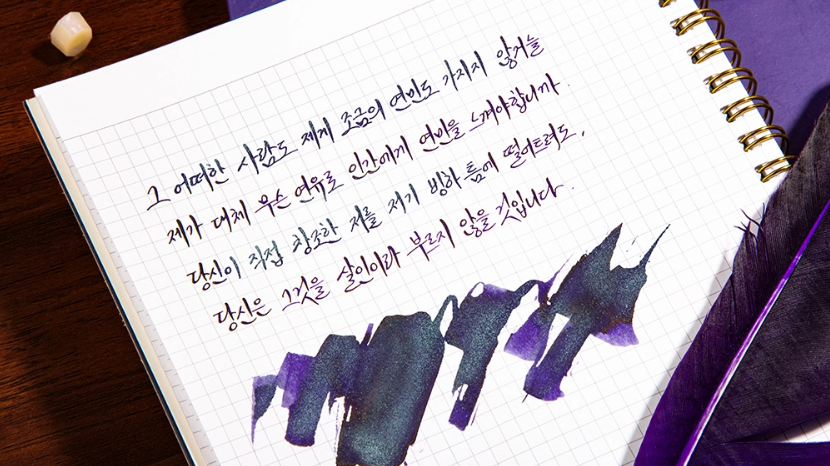 그 어떠한 사람도 제게 조금의 연민도 가지지 않거늘
제가 대체 무슨 연유로 인간에게 연민을 느껴야합니까.
당신이 직접 창조한 저를 저기 빙하 틈에 떨어트려도,
당신은 그것을 살인이라 부르지 않을 것입니다.